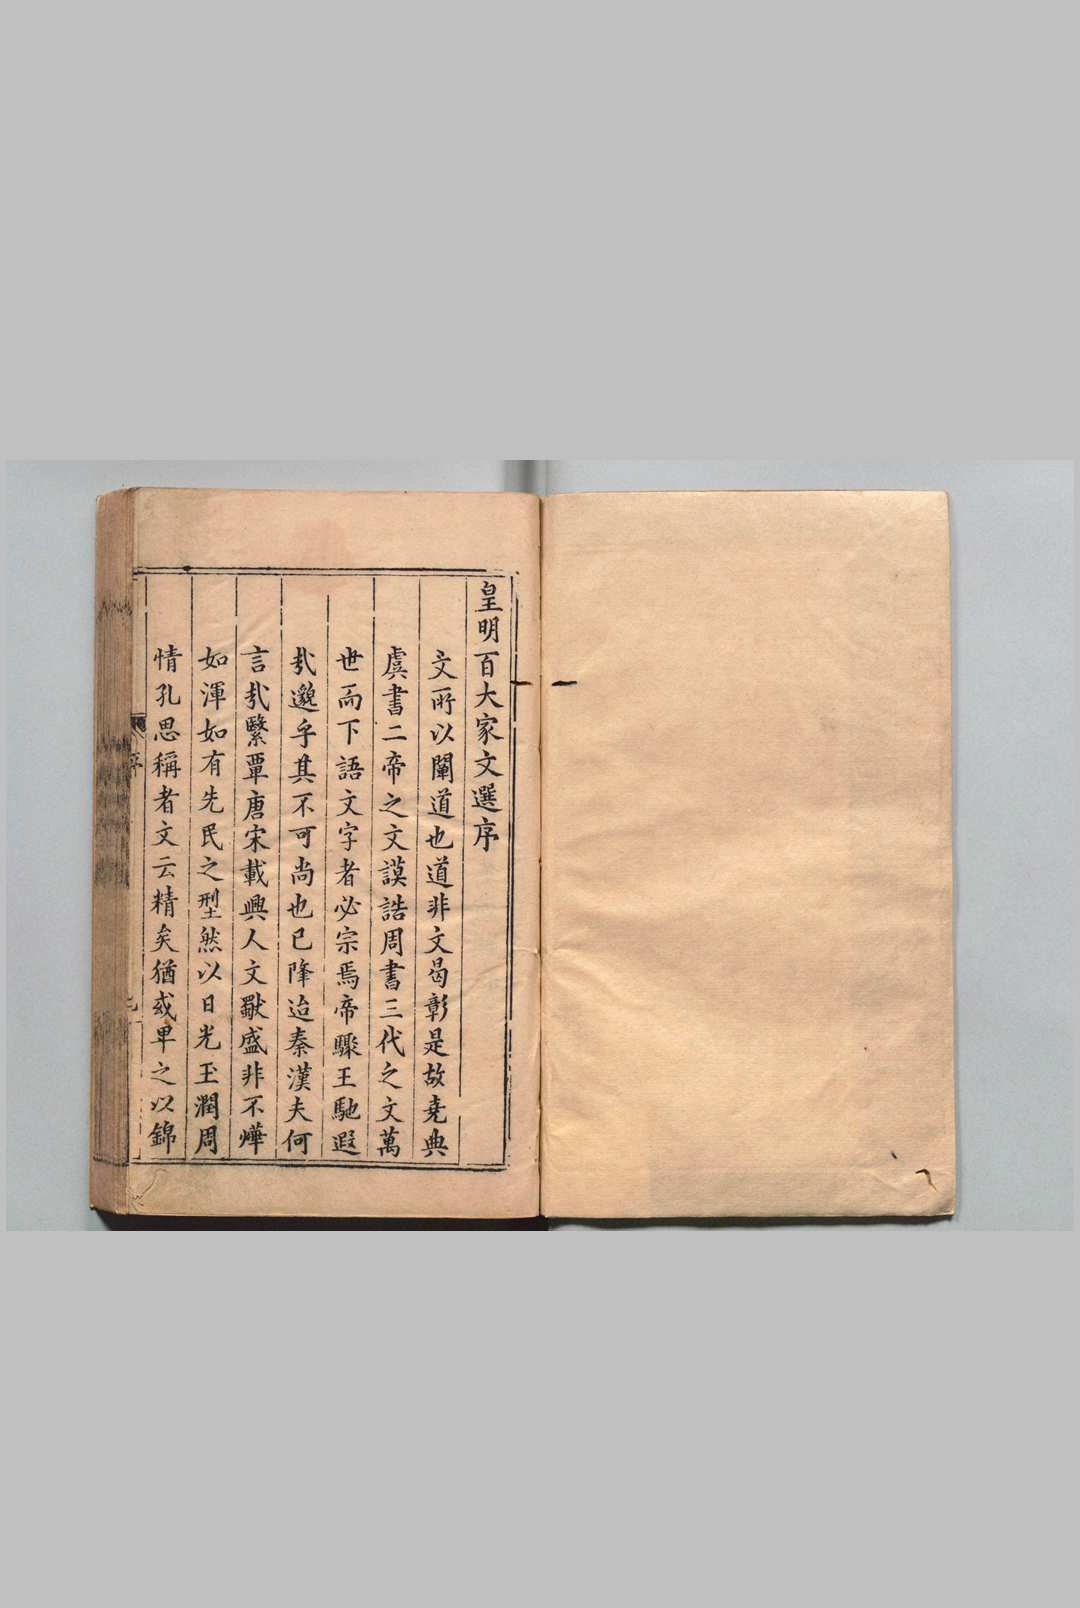 皇明百大家文選序
文所以闡道也道非文曷彰是故堯典
虞書二帝之文謨誥周書三代之文萬
世而下語文字者必宗焉帝驟王馳遐
㢤邈乎其不可尚也已降迨秦漢夫何
言㢤繄覃唐宋載興人文歜盛非不燁
如渾如有先民之型然以日光玉潤周
情孔思稱者文云精矣猶或卑之以錦
序